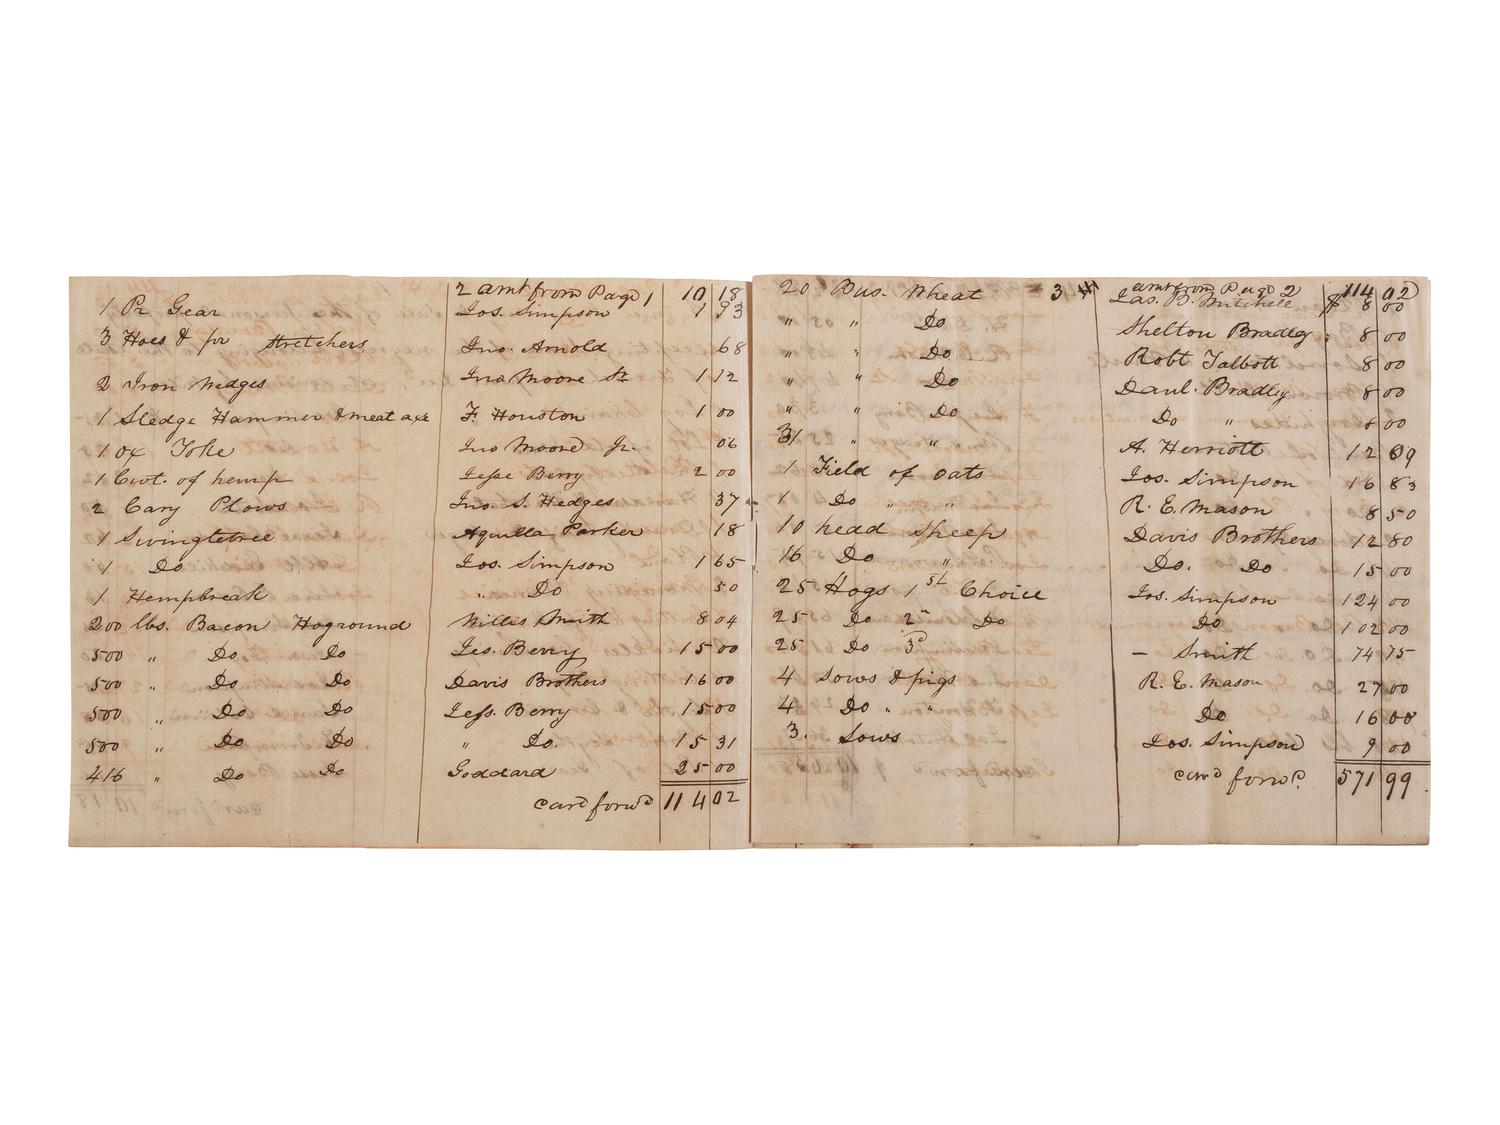 2 amt from Page 1 10 18
1 Pr Gear Jos. Simpson 1 93
3 Hoes & pr Stretchers Jno. Arnold 68
2 Iron Wedges Jno Moore Sr 1 12
1 Sledge Hammer & meat axe F. Houston 1 00
1 Ox Yoke Jno Moore Jr. 06
1 Cwt. of hemp Jesse Berry 2 00
2 Cary Plows Jno. S. Hedges 37
1 Swingletree Aquilla Parker 18
1 Do Jos. Simpson 1 65
1 Hempbreak " Do 50
200 lbs. Bacon Hoground Willis Smith 8 04
500 " Do Do Jes. Berry 15 00
500 " Do Do Davis Brothers 16 00
500 " Do Do Jess. Berry 15 00
500 " Do Do " Do. 15 31
416 " Do Do Goddard 25 00
card forwd 114 02
3 amt from Page 2 114 02
20 Bus. Wheat Jas. B. Mitchell $ 8 00
" " Do Shelton Bradley 8 00
" " Do Robt Talbott 8 00
" " Do Danl. Bradley 8 00
" " Do Do " 8 00
31 " " A. Herriott 12 09
1 Field of Oats Jos. Simpson 16 83
1 Do " " R. E. Mason 8 50
10 head Sheep Davis Brothers 12 80
16 Do " Do. Do 15 00
25 Hogs 1st Choice Jos. Simpson 124 00
25 Do 2" Do Do 102 00
25 Do 3d – Smith 74 75
4 Sows & pigs R. E. Mason 27 00
4 Do " " Do 16 00
3. Sows Jos. Simpson 9 00
card forwd. 571 99